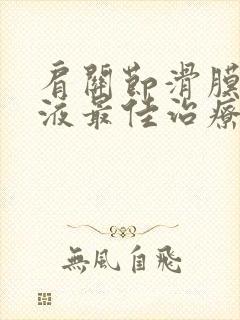 肩關節滑膜
液最佳治療
無風自飛